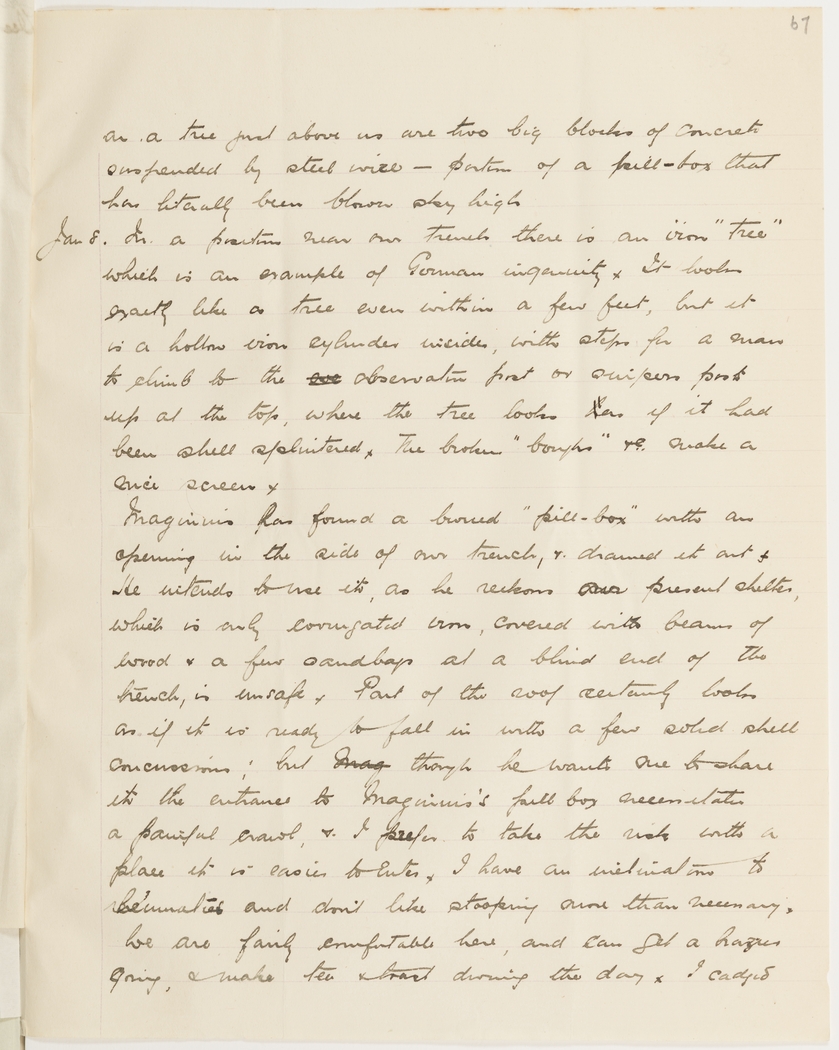 67
on a tree just above us are two big blocks of concrete
suspended by steel wire — portion of a pill-box that
has literally been blown sky high
Jan 8. In a position near our trench there is an iron "tree"
which is an example of German ingenuity x It looks
exactly like a tree even within a few feet, but it
is a hollow iron cylinder inside, with steps for a man
to climb to the observation post or snipers post
up at the top, where the tree looks as if it had
been shell splintered x The broken "boughs" &c. make a
nice screen x
Maginnis has found a buried "pill-box" with an
opening in the side of our trench, & drained it out x
He intends to use it, as he reckons our present shelter,
which is only corrugated iron, covered with beams of
wood & a few sandbags at a blind end of the
trench, is unsafe x Part of the roof certainly looks
as if it is ready to fall in with a few solid shell
concussions; but Mag though he wants me to share
it the entrance to Maginnis's pill box necessitates
a painful crawl, & I prefer to take the risk with a
place it is easier to enter x I have an inclination to
and don't like stooping more than necessary x
We are fairly comfortable here, and can get a brazier
going, & make tea & toast during the day x I cadged